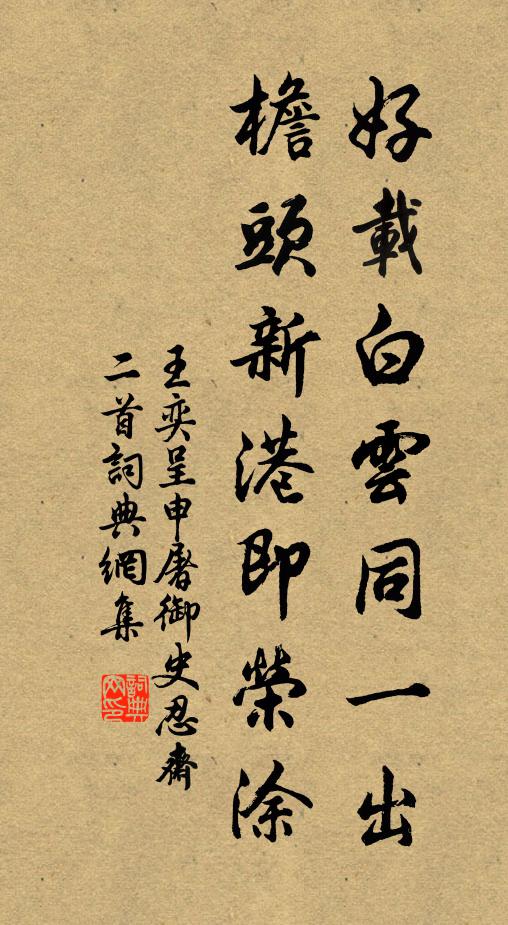 好載白雲同一出
檐頭新港即榮涂
王奕呈申屠御史忍齋
二首詞典網集
詞典
网印